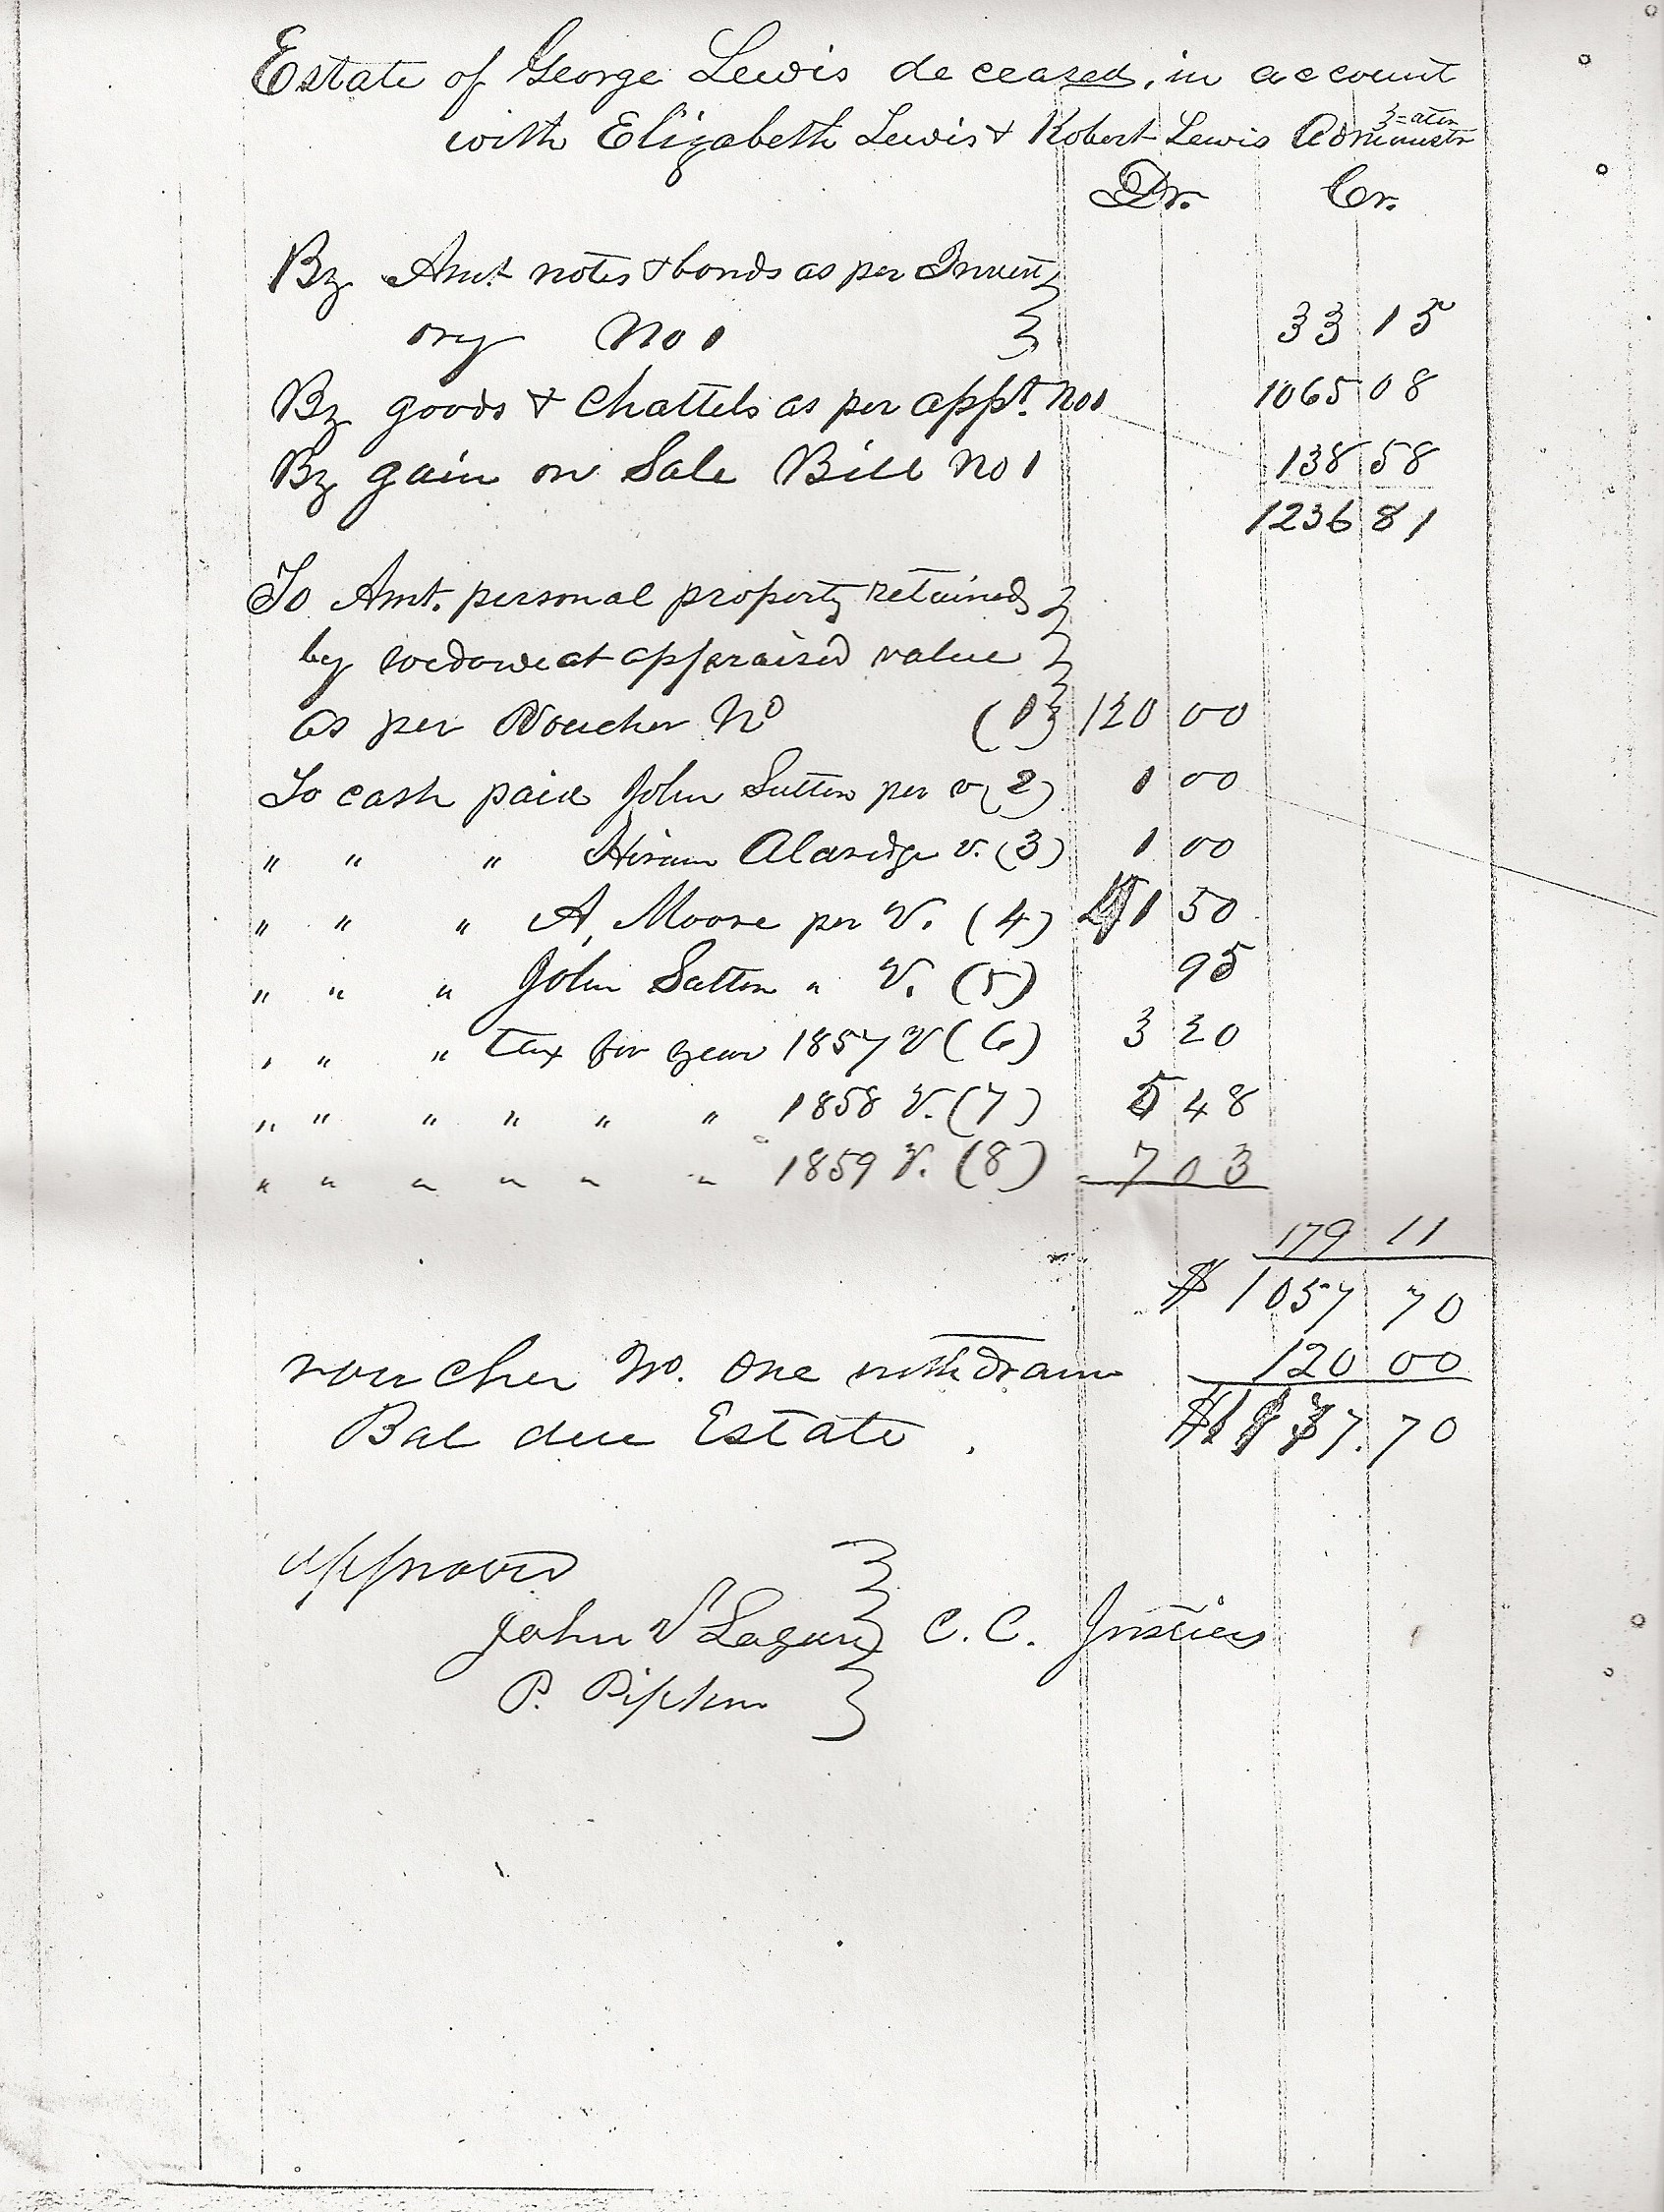 Estate of George Lewis deceased, in account
with Elizabeth Lewis & Robert Lewis Administr
Dr. Cr.
By Amt notes & bonds as per Invent
ory No 1 33 15
By goods & Chattels as per appt. No 1 1065 08
By gain on Sale Bill No 1 138 58
1236 81
To Amt. personal property retained
by widow at appraised value
as per Voucher No (1) 120 00
To cash paid John Sutton per v (2) 1 00
" " " Hiram Alaridge v. (3) 1 00
" " " A. Moore per V. (4) 1 50
" " " John Sutton " V. (5) 95
" " " tax for year 1857 V (6) 3 20
" " " " " " 1858 V. (7) 5 48
" " " " " " 1859 V. (8) 7 03
179 11
$ 1057 70
voucher No. One withdrawn 120 00
Bal due Estate . 7.70
approved
John V C. C. Justices
P. Pipkin